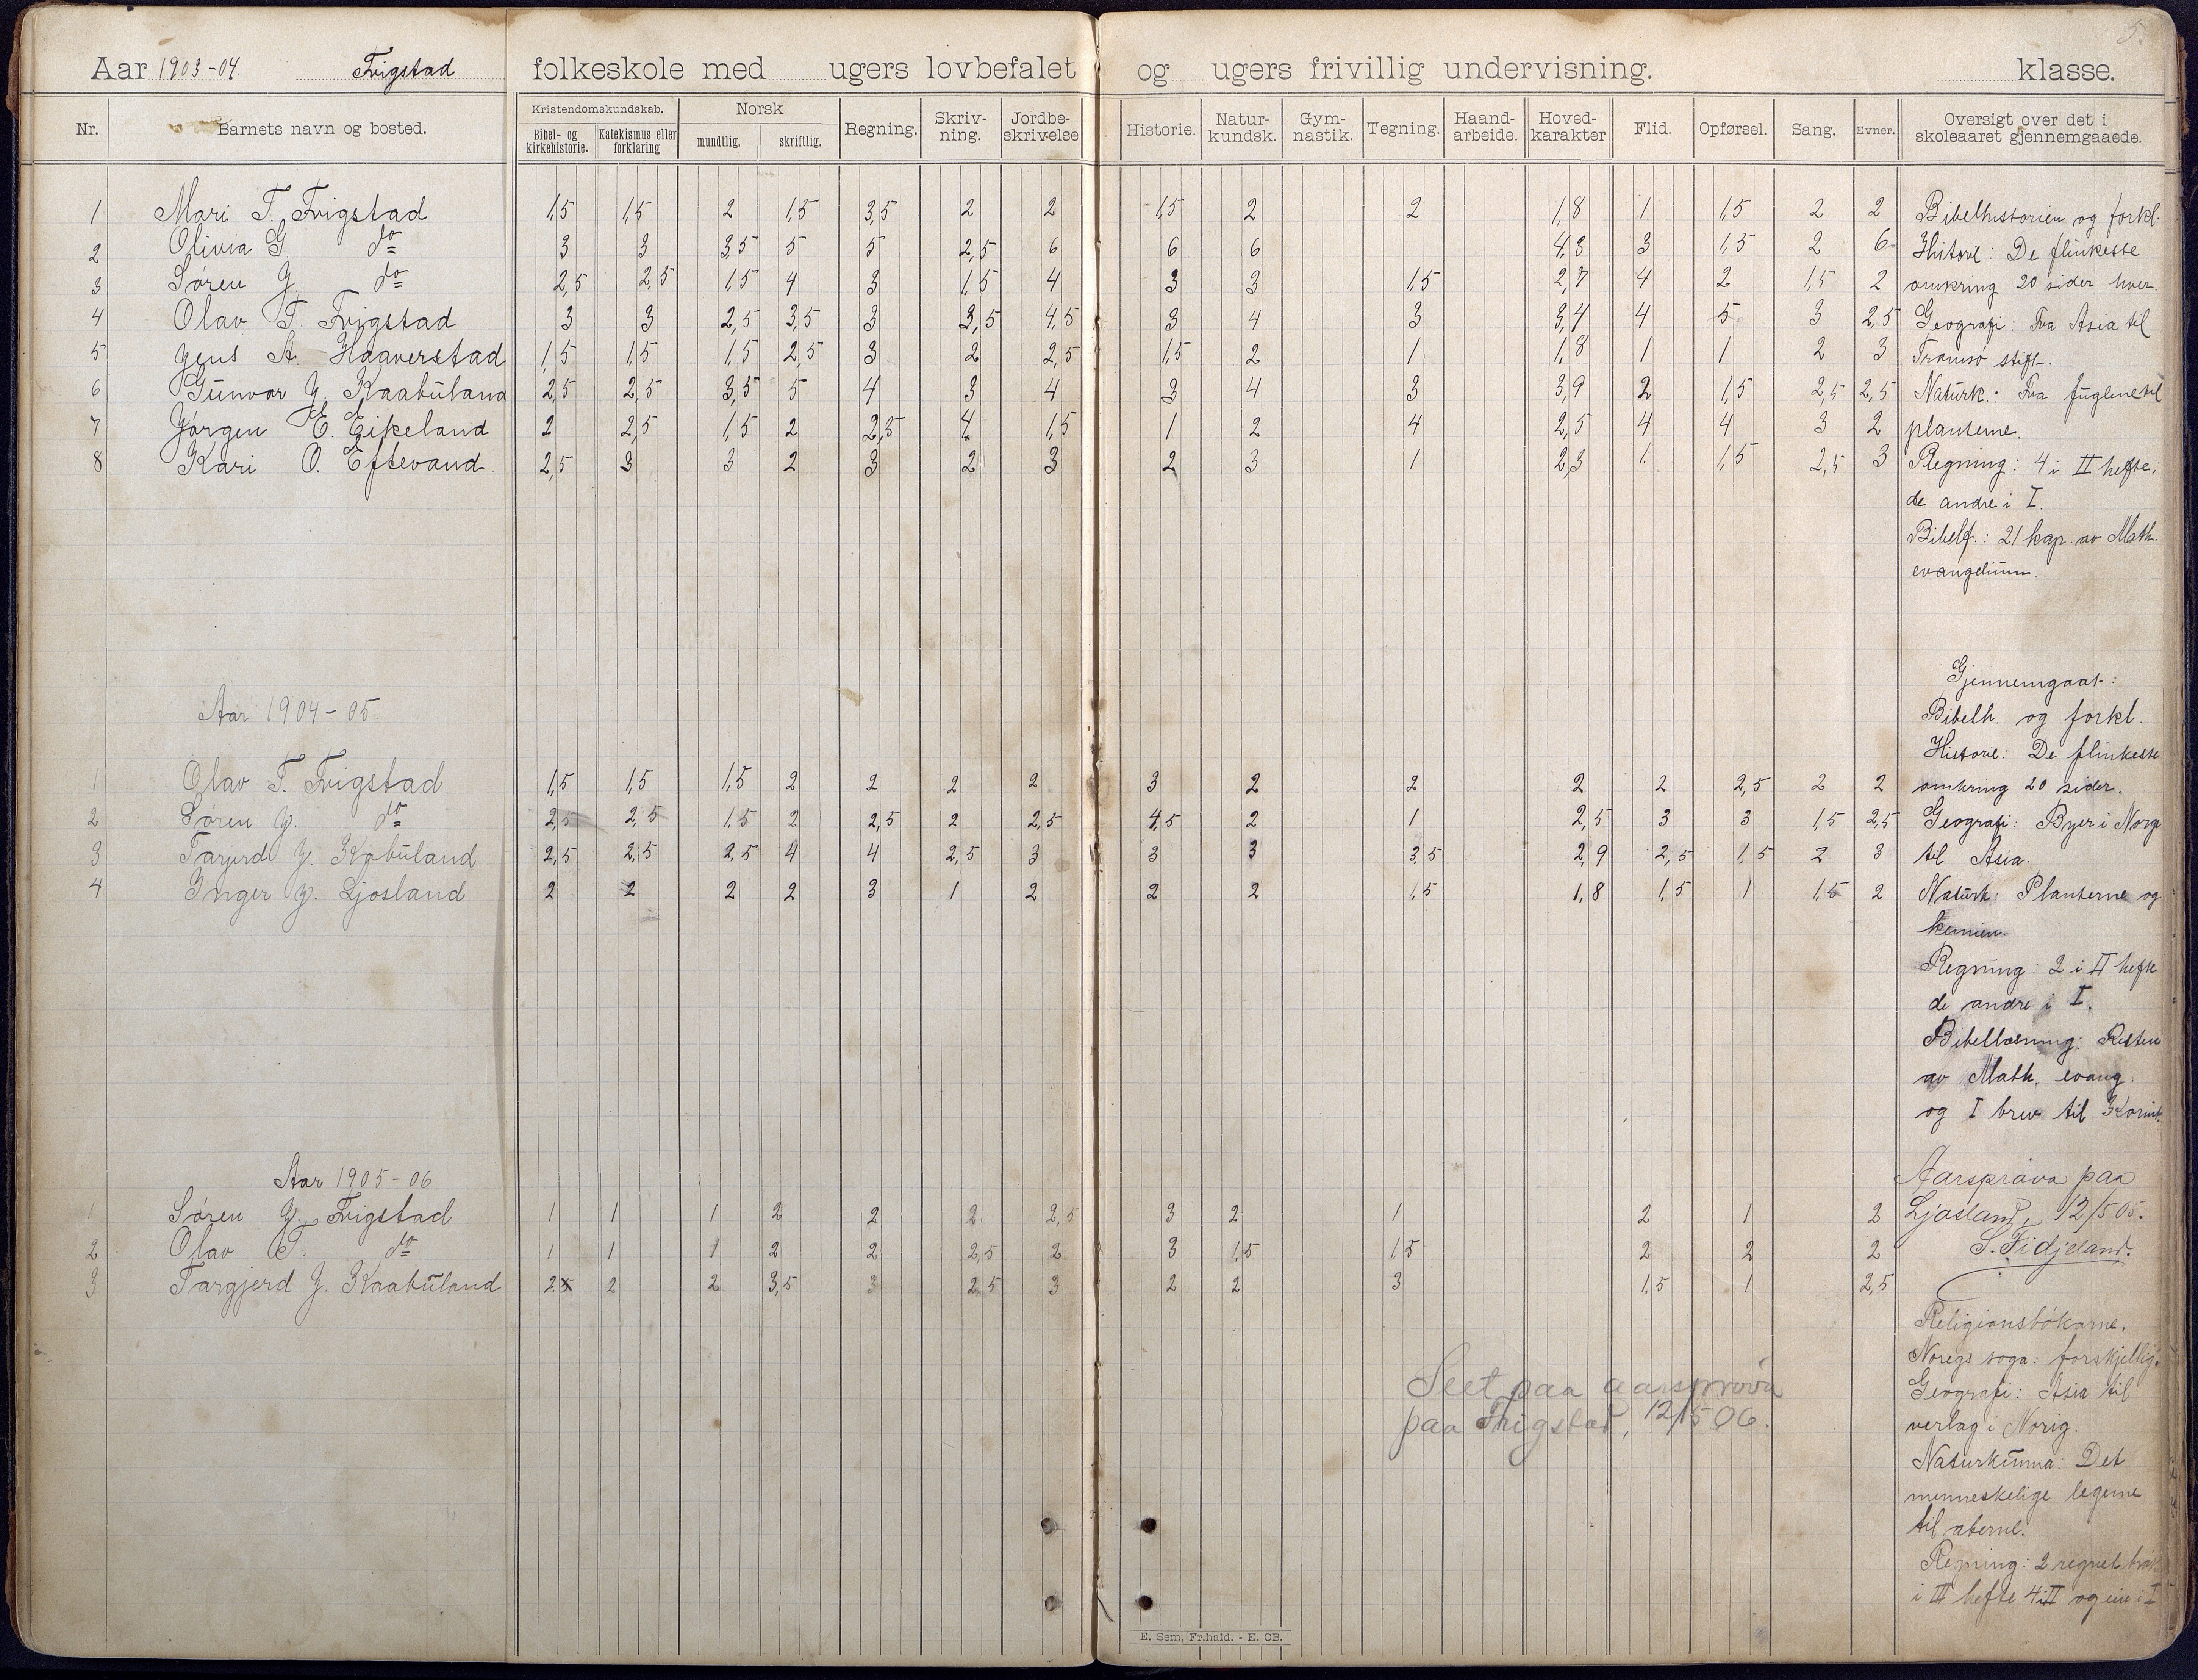 5.
Aar 1903-04. Frigstad folkeskole med ugers lovbefalet og ugers frivillig undervisning. klasse.
Nr. Barnets navn og bosted. Kristendomskundskab. Bibel- og kirkehistorie. Katekismus eller forklaring Norsk mundtlig. skriftlig. Regning. Skriv-ning. Jordbe-skrivelse Historie. Natur-kundsk. Gym-nastik. Tegning. Haand-arbeide. Hoved-karakter Flid. Opførsel. Sang. Evner. Oversigt over det i skoleaaret gjennemgaaede.
1 Mari T. Frigstad 1,5 1,5 2 1,5 3,5 2 2 1,5 2 2 1,8 1 1,5 2 2 Bibelhistorien og forkl.
2 Olivia G. do 3 3 3,5 5 5 2,5 6 6 6 4,3 3 1,5 2 6 Historie: De flinkeste
3 Søren J. do 2,5 2,5 1,5 4 3 1,5 4 3 3 1,5 2,7 4 2 1,5 2 omkring 20 sider hver.
4 Olav T. Frigstad 3 3 2,5 3,5 3 3,5 4,5 3 4 3 3,4 4 5 3 2,5 Geografi: Fra Asia til
5 Jens A. Haaverstad 1,5 1,5 1,5 2,5 3 2 2,5 1,5 2 1 1,8 1 1 2 3 Tromsø stift.
6 Gunvor J. Kaabuland 2,5 2,5 3,5 5 4 3 4 3 4 3 3,9 2 1,5 2,5 2,5 Naturk.: Fra fuglene til
7 Jørgen E. Eikeland 2 2,5 1,5 2 2,5 4 1,5 1 2 4 2,5 4 4 3 2 planterne.
8 Kari O. Eftevand 2,5 3 3 2 3 2 3 2 3 1 2,3 1 1,5 2,5 3 Regning: 4 i II hefte;
de andre i I.
Bibell.: 21 kap. av Math.
evangelium.
Gjennemgaat:
Aar 1904-05.
Bibelh. og forkl.
Historie: De flinkeste
1 Olav T. Frigstad 1,5 1,5 1,5 2 2 2 2 3 2 2 2 2 2,5 2 2 omkring 20 sider.
2 Søren J. do 2,5 2,5 1,5 2 2,5 2 2,5 4,5 2 1 2,5 3 3 1,5 2,5 Geografi: Byer i Norge
3 Targjerd J. Kabuland 2,5 2,5 2,5 4 4 2,5 3 3 3 3,5 2,9 2,5 1,5 2 3 til Asia.
4 Inger J. Ljosland 2 2 2 2 3 1 2 2 2 1,5 1,8 1,5 1 1,5 2 Naturk: Planterne og
kemien.
Regning: 2 i II hefte
de andre i I.
Bibellæsning: Resten
av Math. evang.
og I brev til Korint.
Aar 1905-06
Aarsprøva paa
1 Søren J. Frigstad 1 1 1 2 2 2 2,5 3 2 1 2 1 2 Ljosland, 12/5 05.
2 Olav T. do 1 1 1 2 2 2,5 2 3 1,5 1,5 2 2 2 S. Fidjeland.
3 Targjerd J. Kaabuland 2 2 2 3,5 3 2,5 3 2 2 3 1,5 1 2,5
Religionsbøkarne.
Noregs soga: forskjellig.
Seet paa aarsprøva
Geografi: Asia til
paa Frigstad, 12/5 06.
verlag i Norig.
Naturkunna: Det
menneskelige legeme
til aberne.
Regning: 2 regnet
i III hefte 4 i II og eine i I
E. Sem, Fr.hald. - E. CB.